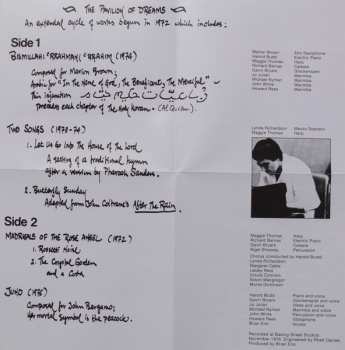 THE PAVILION OF DREAMS
An extended cycle of works begun in 1972 which includes:
Side 1
BISMILLAHI 'RRAHMANI 'RRAHIM (1974)
Composed for Marion Brown;
Arabic for "In the Name of God, The Beneficent, The Merciful"
This injunction
precedes each chapter of the Holy Koran. (Al Qur'an)
Marion Brown Alto Saxophone
Harold Budd Electric Piano
Maggie Thomas Harp
Richard Bernas Celeste
Gavin Bryars Glockenspiel
Jo Julian Marimba
Michael Nyman Marimba
John White Marimba
Howard Rees Marimba
TWO SONGS (1973-74)
1. Let Us Go Into The House of the Lord
A setting of a traditional hymn
after a version by Pharoah Sanders.
2. Butterfly Sunday
Adapted from John Coltrane's After the Rain.
Lynda Richardson Mezzo Soprano
Maggie Thomas Harp
Side 2
MADRIGALS OF THE ROSE ANGEL (1972)
1. Rossetti Noise
2. The Crystal Garden
and a Coda
Maggie Thomas Harp
Richard Bernas Electric Piano
Gavin Bryars Celeste
Nigel Shipway Percussion
Chorus conducted by Harold Budd
Lynda Richardson
Margaret Cable
Lesley Reid
Ursula Connors
Alison Macgregor
Muriel Dickinson
JUNO (1976)
Composed for John Bergamo;
Her mortal symbol is the peacock.
Harold Budd Piano and voice
Gavin Bryars Glockenspiel and voice
Jo Julian Vibes and voice
Michael Nyman Marimba and voice
John White Percussion and voice
Howard Rees Vibraphone
Brian Eno Voices
Recorded at Basing Street Studios
Produced by Brian Eno